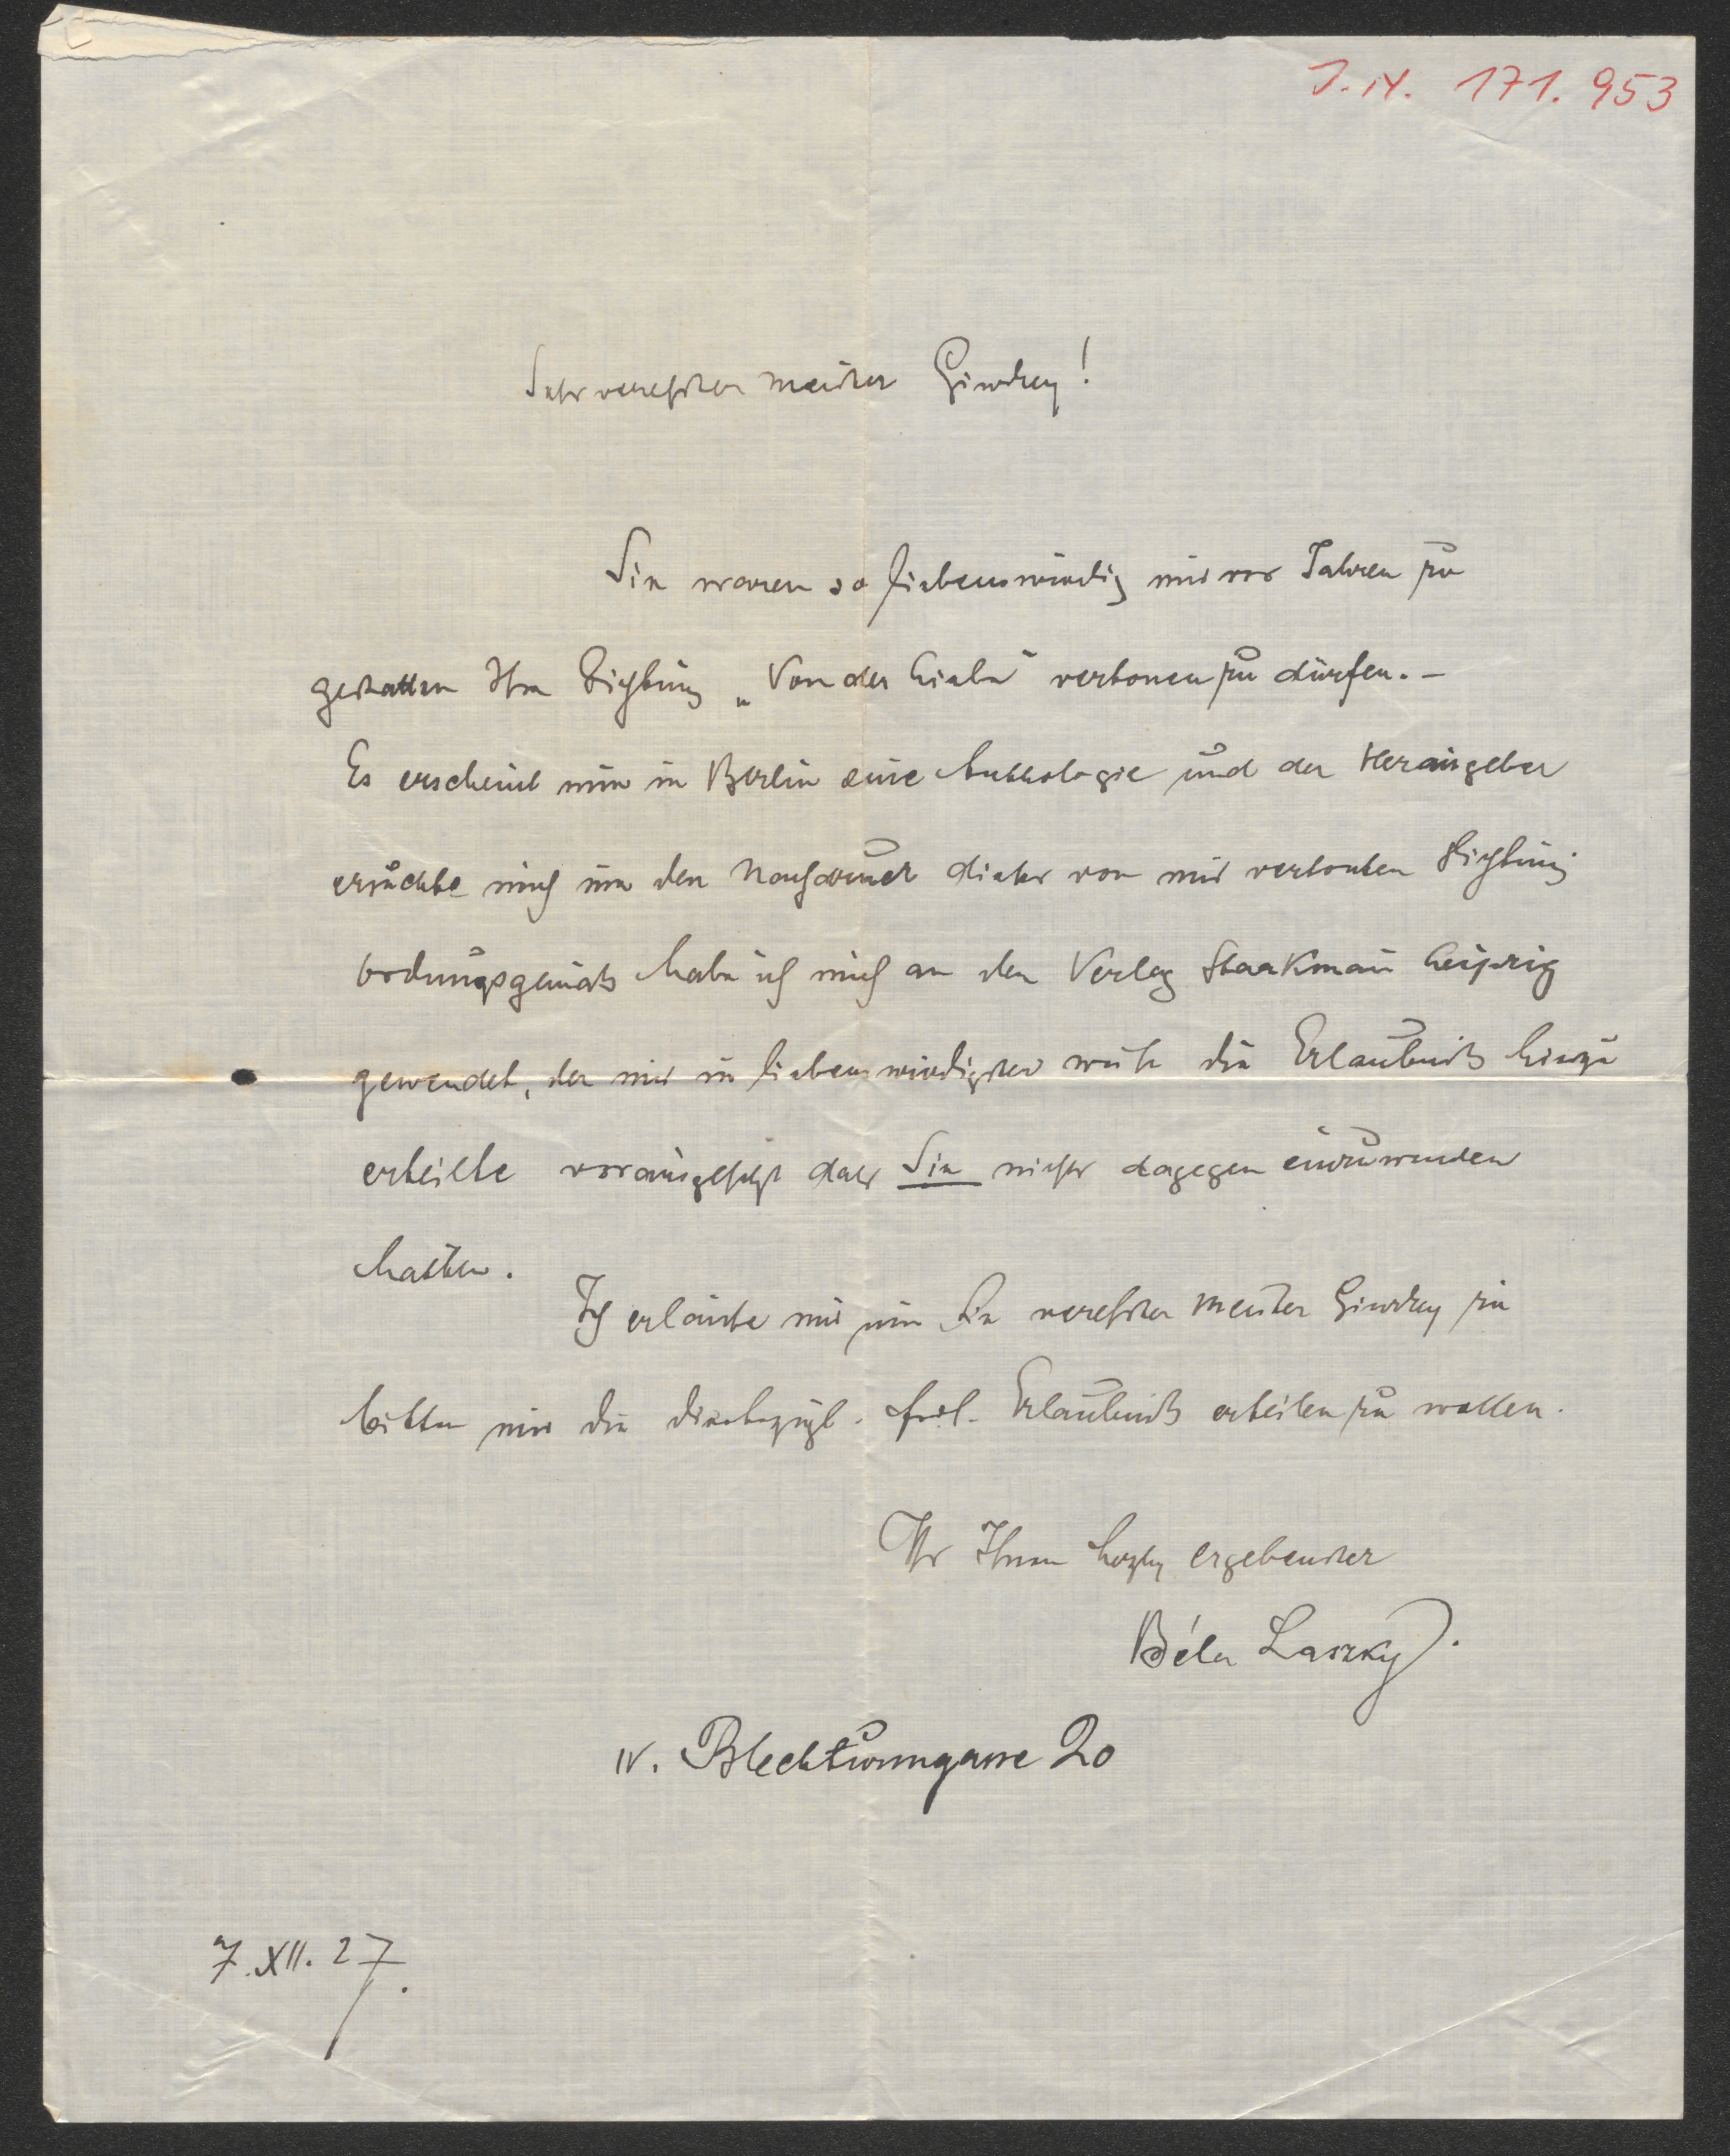 J.N. 171.953
Sehr verehrter Meister Ginzkey!
Sie waren so liebenswürdig mir vor Jahren zu
gestatten Ihre Dichtung „Von der Liebe" vertonen zu dürfen. –
Es erscheint nun in Berlin eine Anthologie und der Herausgeber
ersuchte mich um den Nachdruck dieser von mir vertonten Dichtung
ordnungsgemäß habe ich mich an den Verlag Staakmann Leipzig
gewendet, der mir in liebenswürdigster Weise die Erlaubniß hiezu
erteilte vorausgesetzt dass Sie nichts dagegen einzuwenden
hätten.
Ich erlaube mir nun Sie verehrter Meister Ginzkey zu
bitten mir die diesbezügl. frdl. Erlaubniß erteilen zu wollen.
Ihr Ihnen hochachtungsvoll ergebenster
Béla Laszky.
IV. Blechturmgasse 20
7.XII.27.